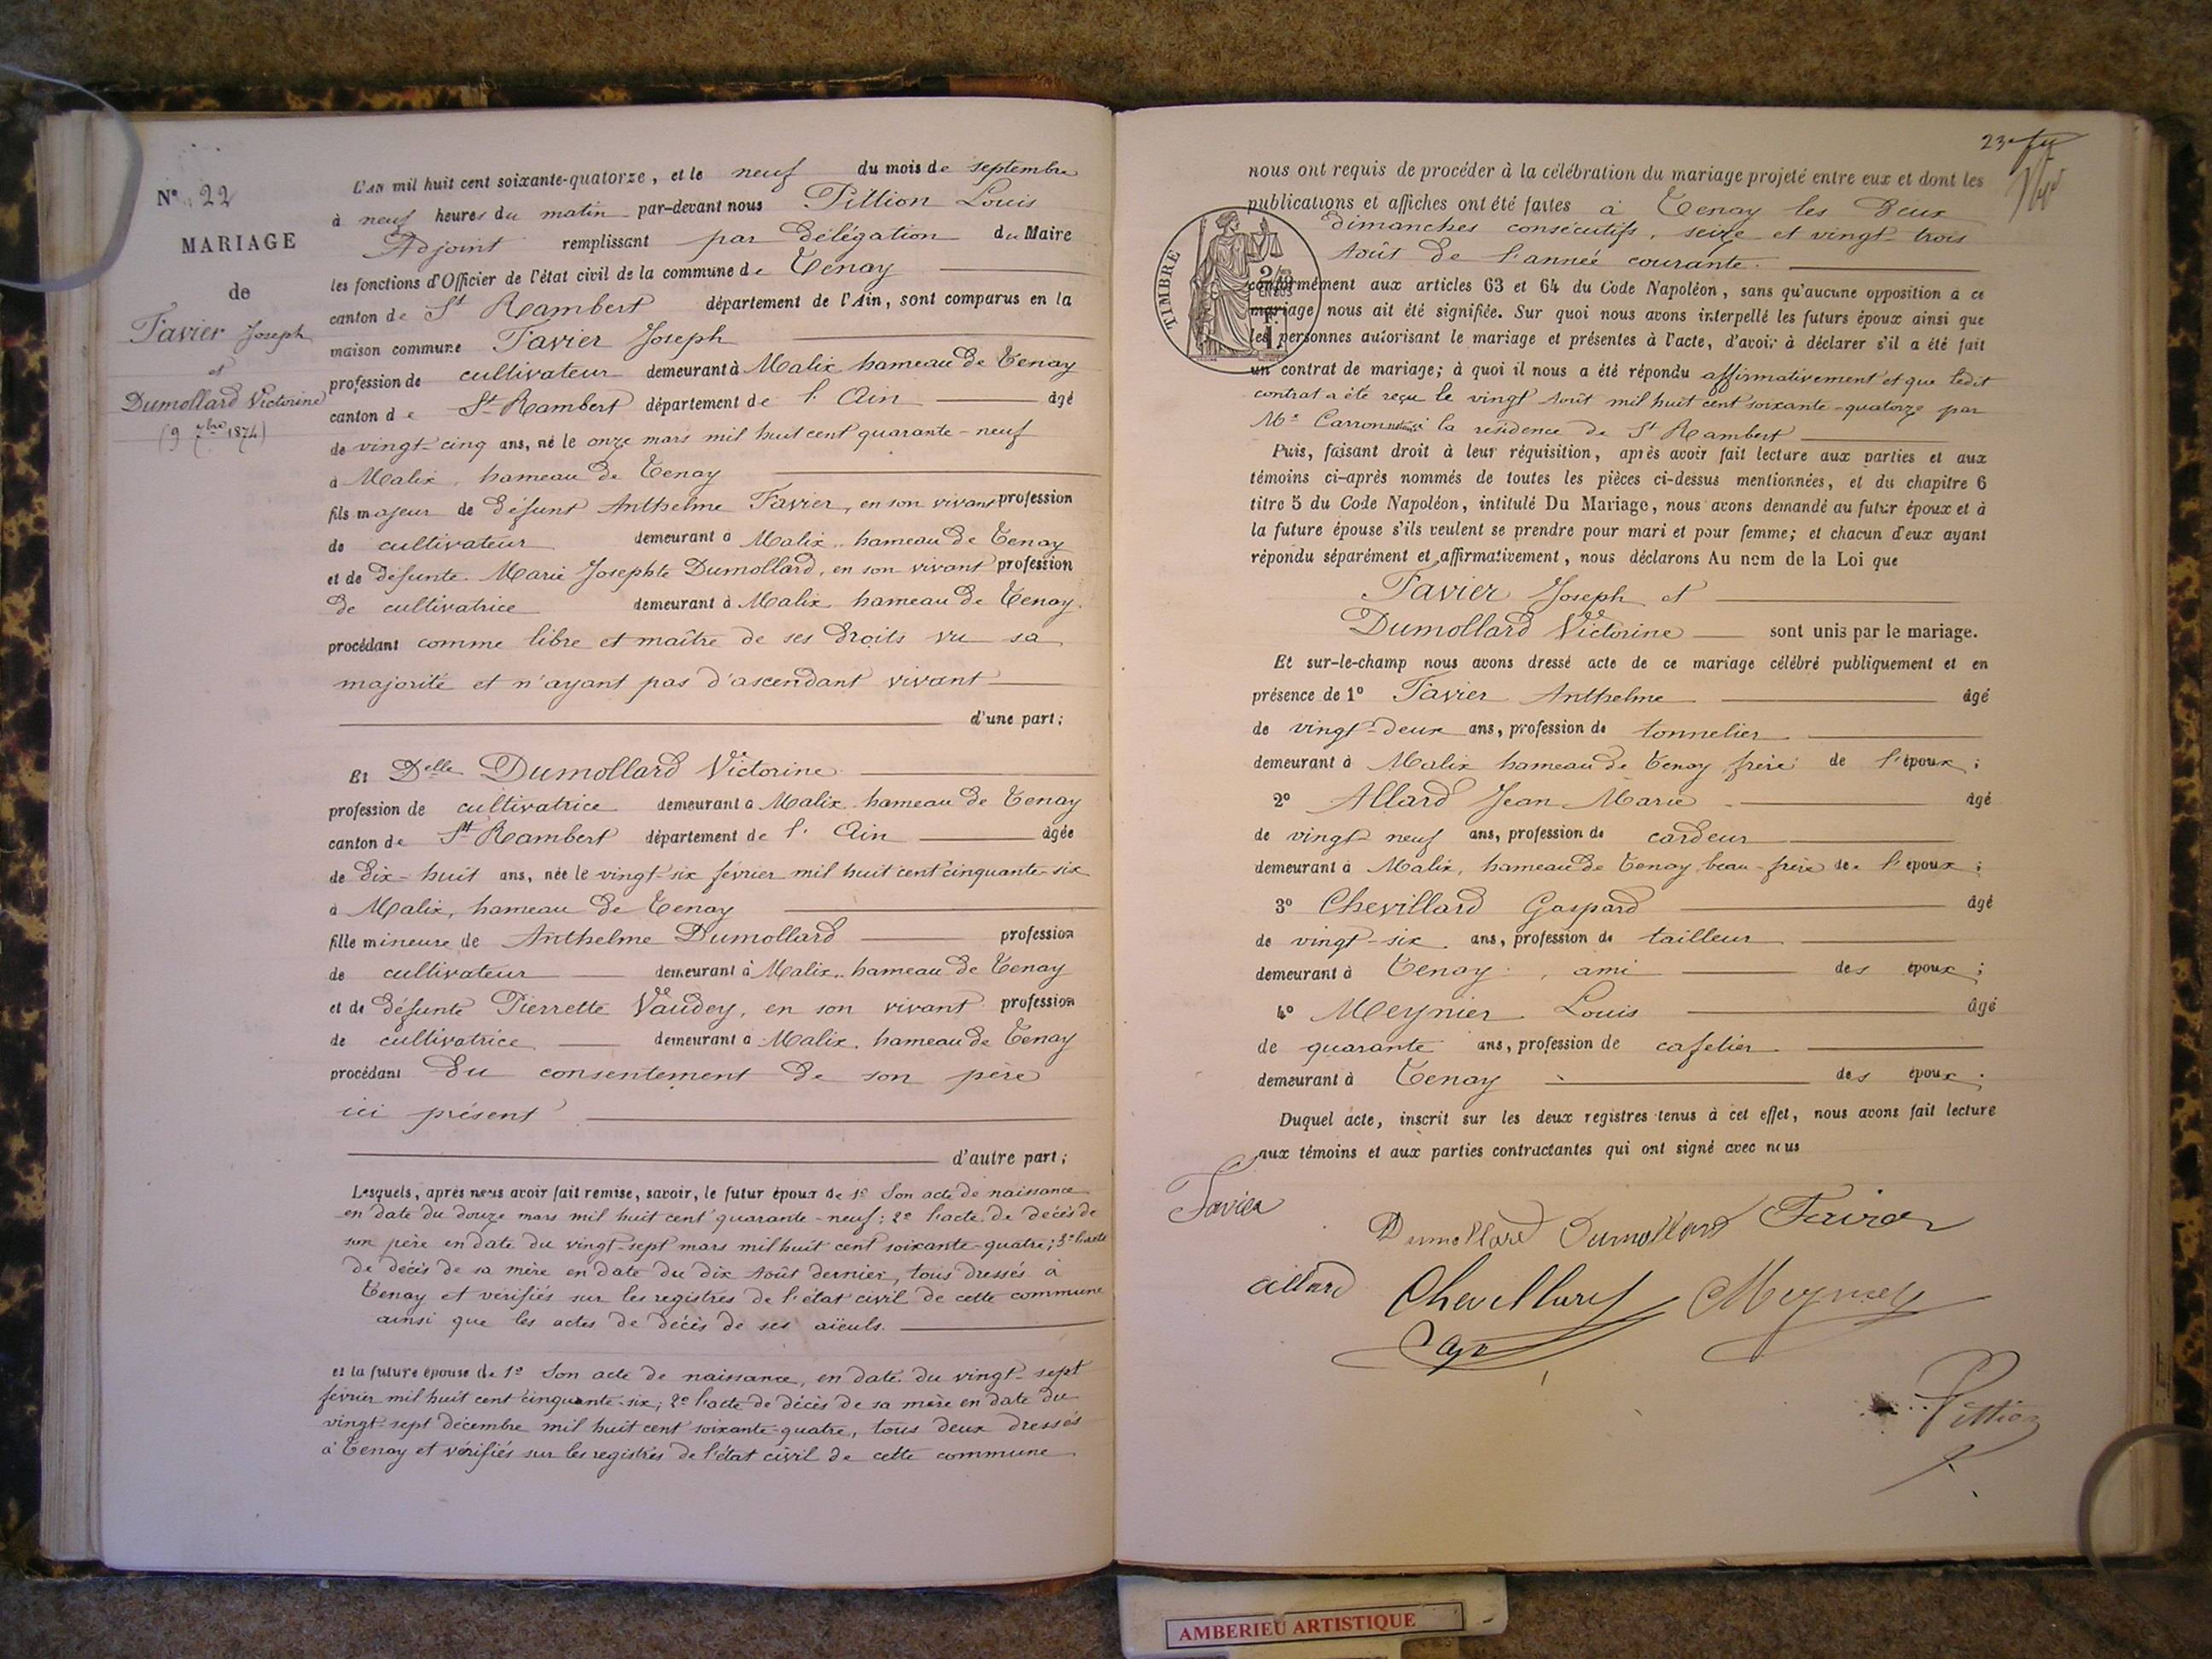 N° 22
MARIAGE
de
Favier Joseph
et
Dumollard Victorine
(9 7bre 1874)
L'AN mil huit cent soixante-quatorze, et le neuf du mois de septembre
à neuf heures du matin par-devant nous Pittion Louis
Adjoint remplissant par délégation du Maire
les fonctions d'Officier de l'état civil de la commune de Tenay
canton de St Rambert département de l'Ain, sont comparus en la
maison commune Favier Joseph
profession de cultivateur demeurant à Malix hameau de Tenay
canton de St Rambert département de l'Ain âgé
de vingt-cinq ans, né le onze mars mil huit cent quarante-neuf
à Malix, hameau de Tenay
fils majeur de défunt Anthelme Favier, en son vivant profession
de cultivateur demeurant à Malix, hameau de Tenay
et de défunte Marie Josephte Dumollard, en son vivant profession
de cultivatrice demeurant à Malix hameau de Tenay.
procédant comme libre et maître de ses droits vu sa
majorité et n'ayant pas d'ascendant vivant
d'une part;
Et Delle Dumollard Victorine
profession de cultivatrice demeurant à Malix hameau de Tenay
canton de St Rambert département de l'Ain âgée
de dix-huit ans, née le vingt-six février mil huit cent cinquante-six
à Malix, hameau de Tenay
fille mineure de Anthelme Dumollard profession
de cultivateur demeurant à Malix, hameau de Tenay
et de défunte Pierrette Vaudey, en son vivant profession
de cultivatrice demeurant à Malix, hameau de Tenay
procédant du consentement de son père
ici présent
d'autre part;
Lesquels, après nous avoir fait remise, savoir, le futur époux de 1° Son acte de naissance
en date du douze mars mil huit cent quarante-neuf; 2° l'acte de décès de
son père en date du vingt-sept mars mil huit cent soixante-quatre; 3° l'acte
de décès de sa mère en date du dix Août dernier, tous dressés à
Tenay et vérifiés sur les registres de l'état civil de cette commune
ainsi que les actes de décès de ses aïeuls.
et la future épouse de 1° Son acte de naissance, en date du vingt-sept
février mil huit cent cinquante-six; 2° l'acte de décès de sa mère en date du
vingt-sept décembre mil huit cent soixante-quatre, tous deux dressés
à Tenay et vérifiés sur les registres de l'état civil de cette commune
nous ont requis de procéder à la célébration du mariage projeté entre eux et dont les
publications et affiches ont été faites à Tenay les deux
dimanches consécutifs, seize et vingt-trois
Août de l'année courante.
conformément aux articles 63 et 64 du Code Napoléon, sans qu'aucune opposition à ce
mariage nous ait été signifiée. Sur quoi nous avons interpellé les futurs époux ainsi que
les personnes autorisant le mariage et présentes à l'acte, d'avoir à déclarer s'il a été fait
un contrat de mariage; à quoi il nous a été répondu affirmativement et que ledit
contrat a été reçu le vingt Août mil huit cent soixante-quatorze par
Me Carron à la résidence de St Rambert
Puis, faisant droit à leur réquisition, après avoir fait lecture aux parties et aux
témoins ci-après nommés de toutes les pièces ci-dessus mentionnées, et du chapitre 6
titre 5 du Code Napoléon, intitulé Du Mariage, nous avons demandé au futur époux et à
la future épouse s'ils veulent se prendre pour mari et pour femme; et chacun d'eux ayant
répondu séparément et affirmativement, nous déclarons Au nom de la Loi que
Favier Joseph et
Dumollard Victorine sont unis par le mariage.
Et sur-le-champ nous avons dressé acte de ce mariage célébré publiquement et en
présence de 1° Favier Anthelme âgé
de vingt-deux ans, profession de tonnelier
demeurant à Malix hameau de Tenay, frère de l'époux;
2° Allard Jean Marie âgé
de vingt neuf ans, profession de cardeur
demeurant à Malix, hameau de Tenay, beau-frère de l'époux;
3° Chevillard Gaspard âgé
de vingt-six ans, profession de tailleur
demeurant à Tenay, ami des époux;
4° Meynier Louis âgé
de quarante ans, profession de cafetier
demeurant à Tenay des époux.
Duquel acte, inscrit sur les deux registres tenus à cet effet, nous avons fait lecture
aux témoins et aux parties contractantes qui ont signé avec nous
Favier
Dumollard Dumollard Favier
allard Chevillard Meynier
Pittion
TIMBRE
AMBERIEU ARTISTIQUE